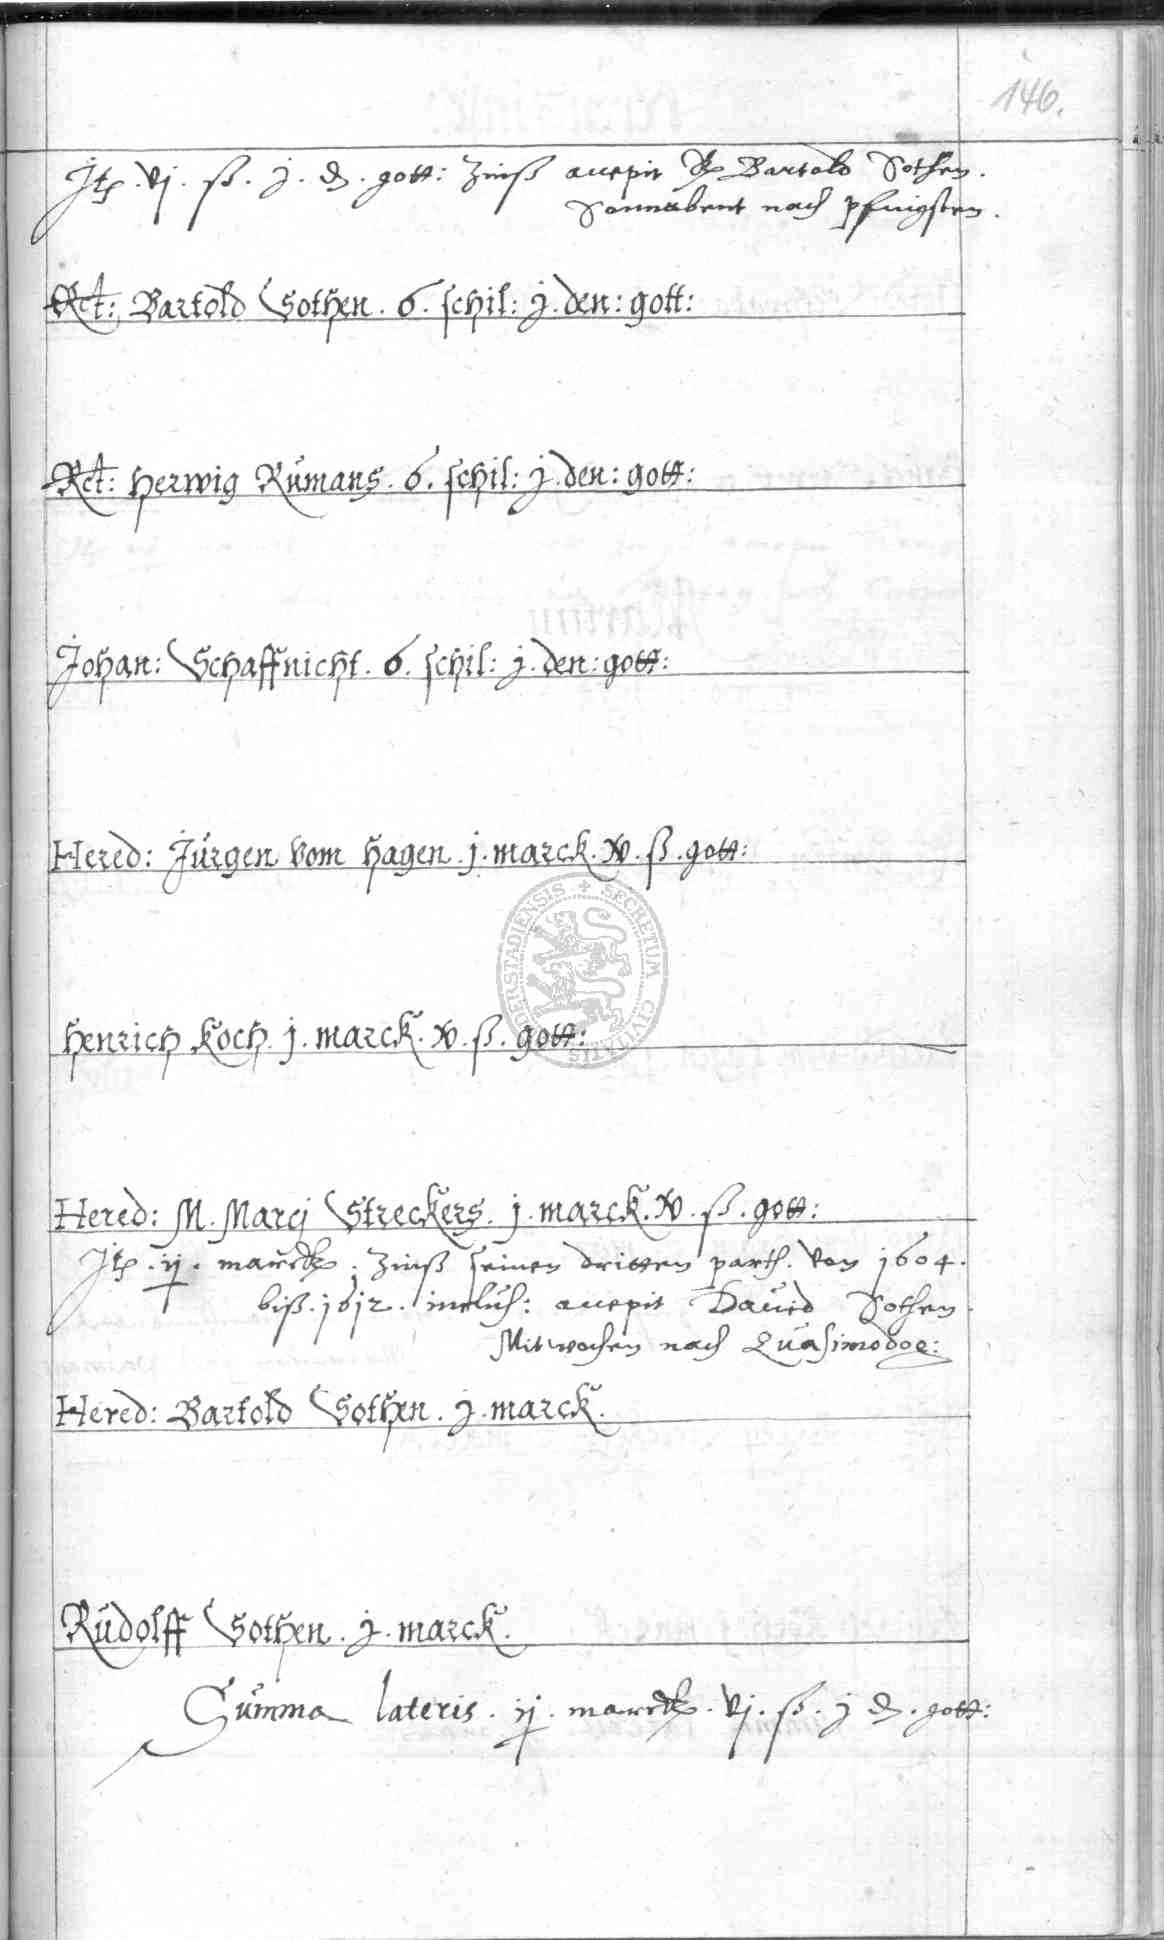 146.
Jtē. vj. ß. j. ₰. gott: Zinß accepit Bartold Sothen.
Sonnabent nach pfingsten.
Rct: Bartold Sothen. 6. schil: j. den: gott:
Rct: Herwig Rumans. 6. schil: j. den: gott:
Johan: Schaffnicht. 6. schil: j. den: gott:
Hered: Jürgen vom Hagen. j. marck. xv. ß. gott:
Henrich Koch. j. marck. xv. ß. gott:
Hered: M. Marcj Streckers. j. marck. xv. ß. gott:
Jtē. ij. marck. Zinß seinen dritten parth. von 1604.
biß. 1612. inclus: accepit David Sothen.
Mitwochen nach Quasimodog:
Hered: Bartold Sothen. j. marck.
Rudolff Sothen. j. marck.
Summa lateris. ij. marck. vj. ß. j ₰. gott:
SECRETUM CIVITATIS DERSTADIENSIS